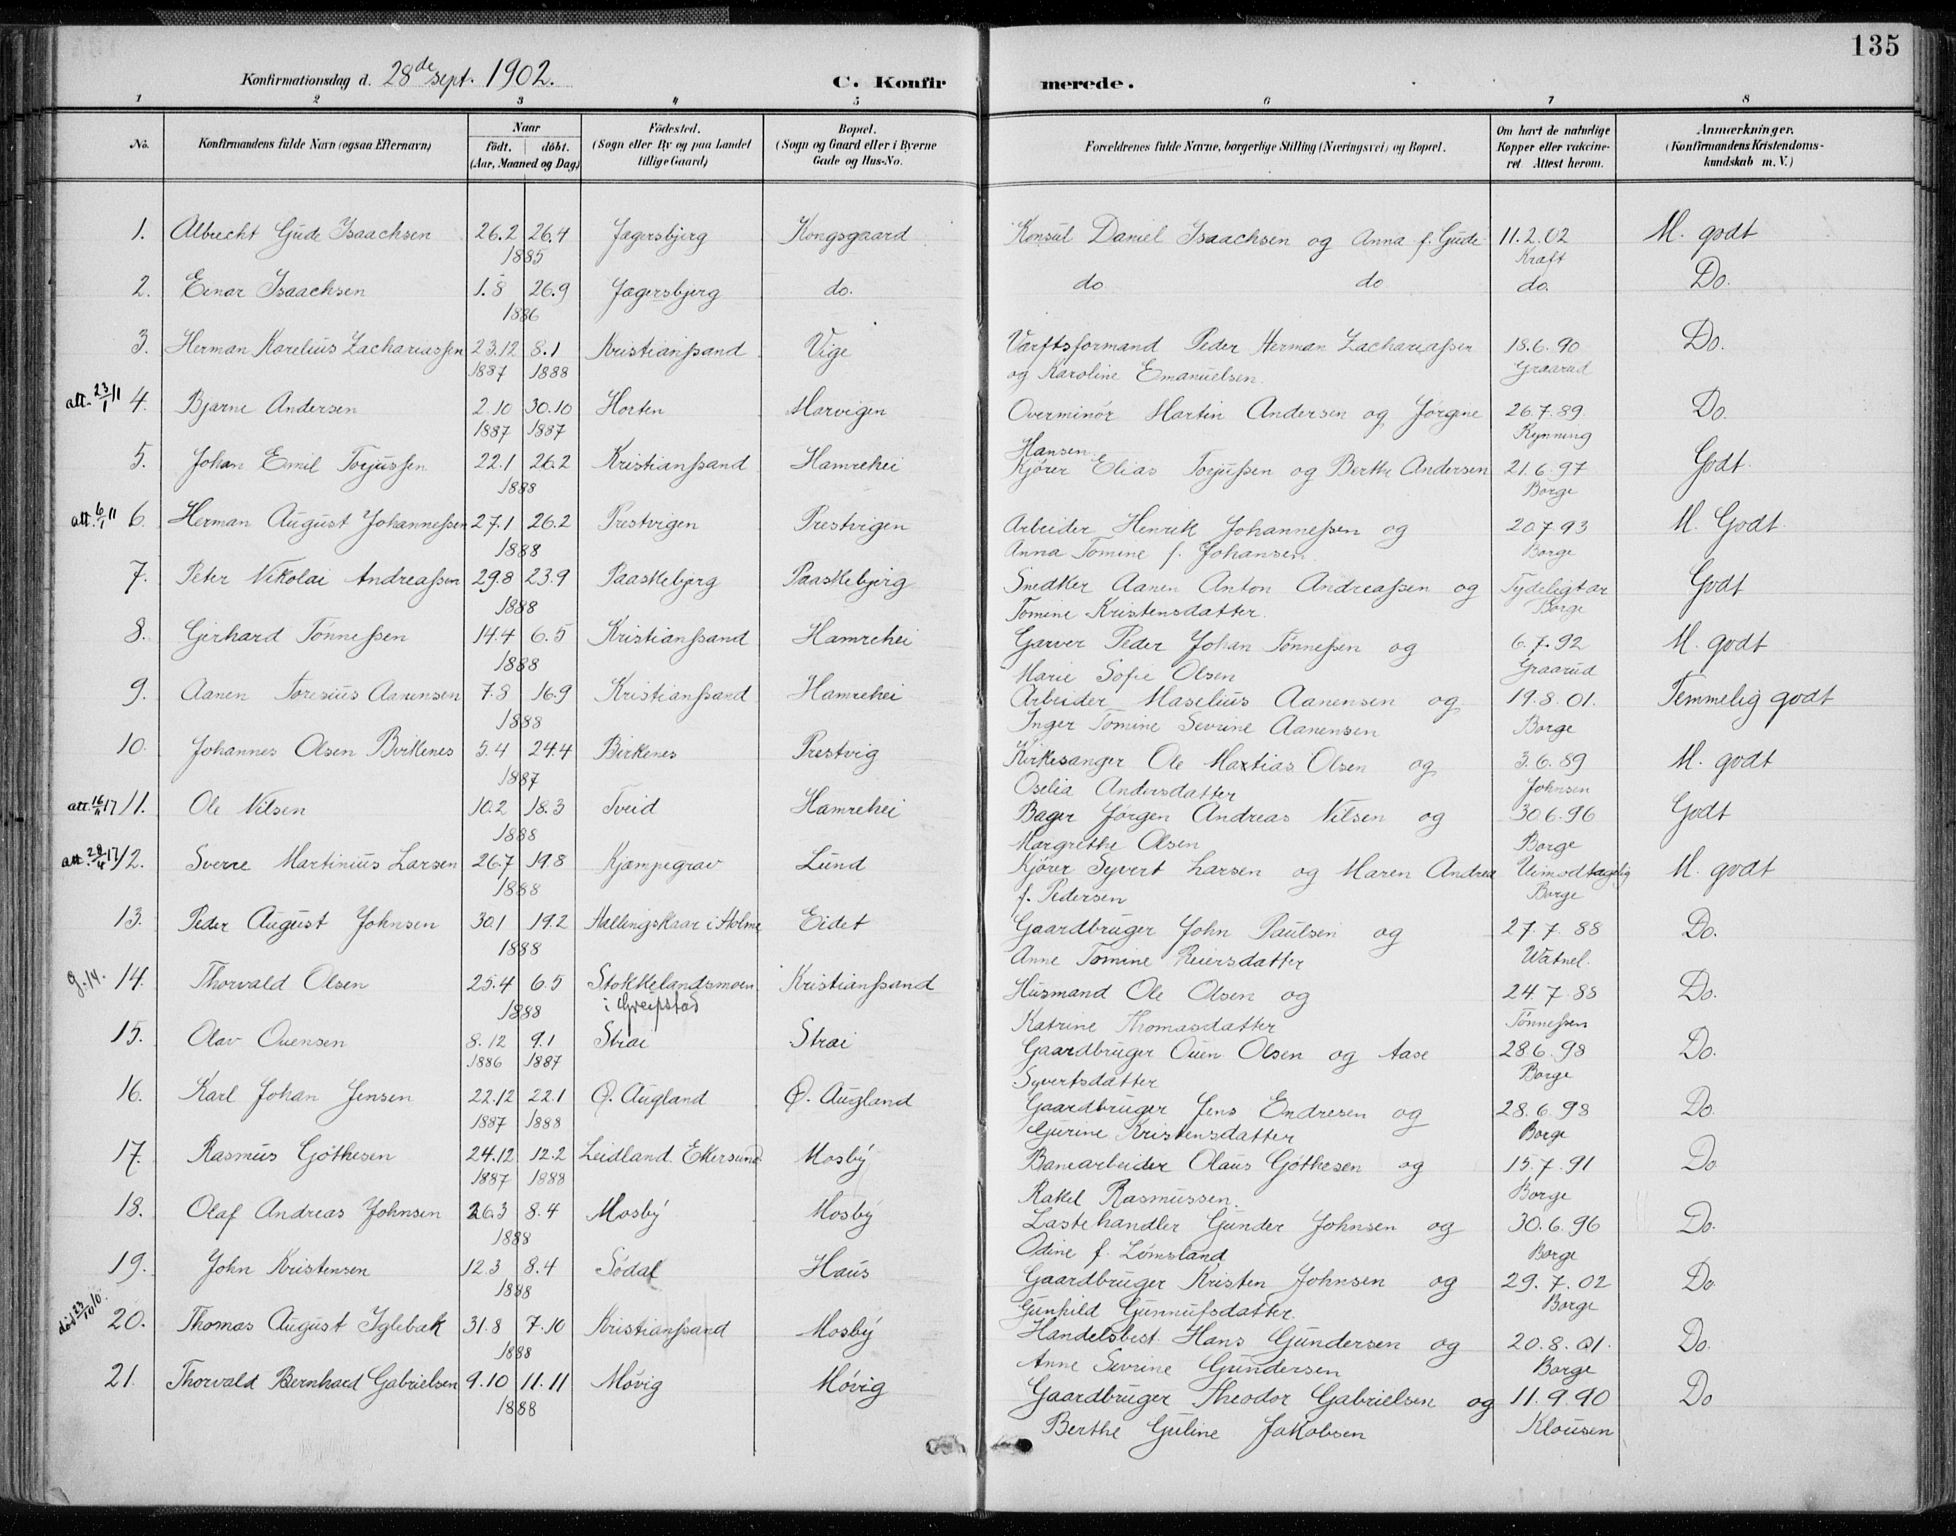 135
Konfirmationsdag d. 28de sept. 1902.
C. Konfirmerede.
1 2 3 4 5 6 7 8
No.
Konfirmandens fulde Navn (ogsaa Efternavn)
Naar
født. døbt.
(Aar, Maaned og Dag)
Fødested.
(Sogn eller By og paa Landet
tillige Gaard)
Bopæl.
(Sogn og Gaard eller i Byerne
Gade og Hus-No.
Forældrenes fulde Navne, borgerlige Stilling (Næringsvei) og Bopæl.
Om havt de naturlige
Kopper eller vakcine-
ret Attest herom.
Anmærkninger.
(Konfirmandens Kristendoms-
kundskab m. V.)
1. Albrecht Gude Isaachsen 26.2 26.4 Jægersbjerg Kongsgaard Konsul Daniel Isaachsen og Anna f. Gude 11.2.02 M. godt
1885 Kraft
2. Einar Isaachsen 1.8 26.9 Jægersbjerg do. do do do. Do.
1886
3. Herman Karelius Zachariassen 23.12 8.1 Kristianssand Vige Varftsformand Peder Herman Zachariassen 18.6.90 Do.
1887 1888 og Karoline Emanuelsen. Graarud
att. 23/1 11 4. Bjarne Andersen 2.10 30.10 Horten Marvigen Overminør Martin Andersen og Jørgine 26.7.89. Do.
1887 1887 Hansen Rynning
5. Johan Emil Torjussen 22.1 26.2 Kristianssand Hamrehei Kjører Elias Torjussen og Berthe Andersen 21.6.97 Godt
1888 Borge
att. 6/1 11 6. Herman August Johannessen 27.1 26.2 Prestvigen Prestvigen Arbeider Henrik Johannessen og 20.7.93 M. Godt
1888 Anna Tomine f. Johansen. Borge
7. Peter Nikolai Andreassen 29.8 23.9 Paaskebjerg Paaskebjerg Snedker Aanen Anton Andreassen og Tydeligt ar Godt
1888 Tomine Kristensdatter. Borge
8. Gerhard Tønnessen 14.4 6.5 Kristianssand Hamrehei Garver Peder Johan Tønnessen og 6.7.92 M. godt
1888 Marie Sofie Olsen Graarud
9. Aanen Toresius Aanensen 7.8 16.9 Kristianssand Hamrehei Arbeider Maselius Aanensen og 19.8.01. Temmelig godt
1888 Inger Tomine Sevrine Aanensen Borge
10. Johannes Olsen Birkenes 5.4 24.4 Birkenes Prestvig Kirkesanger Ole Mathias Olsen og 3.6.89 M. godt
1887 Oselia Andersdatter Johnsen
att. 16/4 17 11. Ole Nilsen 10.2 18.3 Tveid Hamrehei Bager Jørgen Andreas Nilsen og 30.6.96 Godt
1888 Margrethe Olsen Borge
att. 28/4 17 12. Sverre Martinius Larsen 26.7 19.8 Kjæmpegrav Lund Kjører Syvert Larsen og Maren Andrea Uimodtagelig M. godt
1888 f. Pedersen Borge
13. Peder August Johnsen 30.1 19.2 Hallingskaar i Holme Eidet Gaardbruger John Paulsen og 27.7.88 Do.
1888 Anne Tomine Reiersdatter Watnel.
g. 14. 14. Thorvald Olsen 25.4 6.5 Stokkelandsmoen Kristianssand Husmand Ole Olsen og 24.7.88 Do.
1888 i Greipstad Katrine Thomasdatter Tønnessen
15. Olav Ouensen 8.12 9.1 Strai Strai Gaardbruger Ouen Olsen og Aase 28.6.98 Do.
1886 1887 Syvertsdatter Borge
16. Karl Johan Jensen 22.12 22.1 Ø. Augland Ø. Augland Gaardbruger Jens Endresen og 28.6.98 Do
1887 1888 Gurine Kristensdatter Borge
17. Rasmus Gøthesen 24.12 12.2 Leidland. Ekersund Mosby Banearbeider Olaus Gøthesen og 15.7.91 Do
1887 1888 Rakel Rasmussen. Borge
18. Olaf Andreas Johnsen 26.3 8.4 Mosby Mosby Lastehandler Gunder Johnsen og 30.6.96 Do.
1888 Odine f. Lømsland Borge
19. John Kristensen 12.3 8.4 Sødal Haus Gaardbruger Kristen Johnsen og 29.7.02 Do
1888 Gunhild Gunnufsdatter. Borge
død 23/10 10. 20. Thomas August Iglebæk 31.8 7.10 Kristianssand Mosby Handelsbest. Hans Gundersen og 20.8.01. Do.
1888 Anne Sevrine Gundersen Borge
21. Thorvald Bernhard Gabrielsen 9.10 11.11 Møvig Møvig Gaardbruger Theodor Gabrielsen og 11.9.90 Do
1888 Berthe Guline Jakobsen Klousen